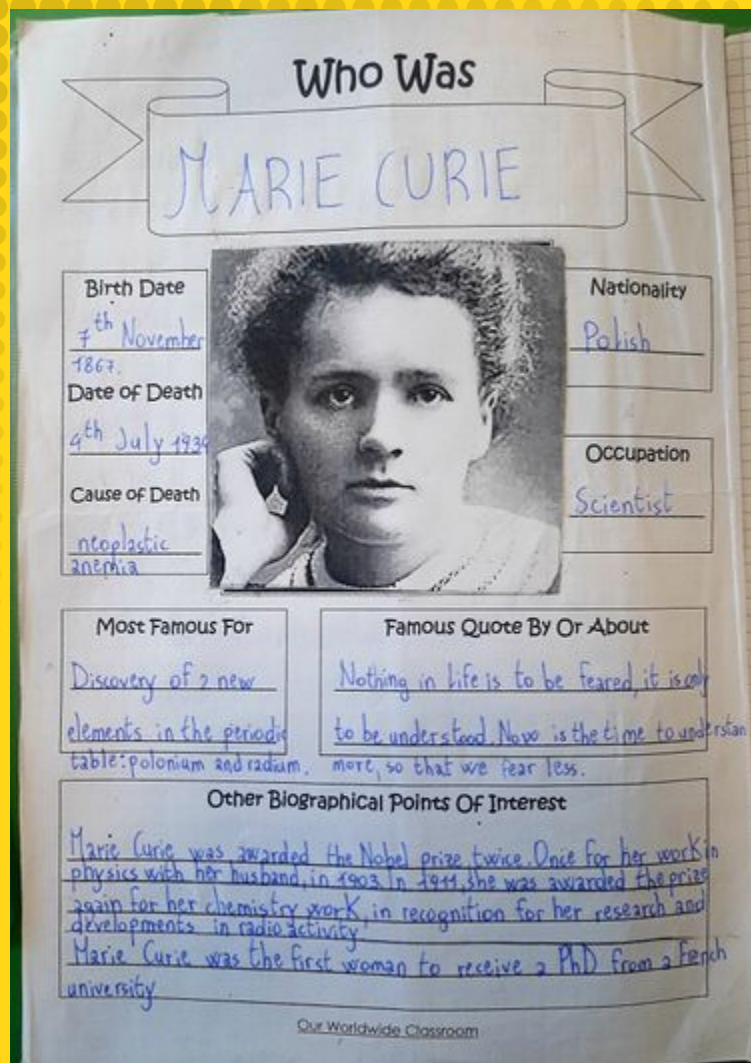 Who Was
MARIE CURIE
Birth Date
7th November
1867.
Date of Death
4th July 1934
Cause of Death
neoplastic
anemia
Nationality
Polish
Occupation
Scientist
Most Famous For
Discovery of 2 new
elements in the periodic
table: polonium and radium.
Famous Quote By Or About
Nothing in life is to be feared, it is only
to be understood. Now is the time to understan
more, so that we fear less.
Other Biographical Points Of Interest
Marie Curie was awarded the Nobel prize twice. Once for her work in
physics with her husband, in 1903. In 1911, she was awarded the prize
again for her chemistry work, in recognition for her research and
developments in radioactivity
Marie Curie was the first woman to receive a PhD from a French
university
Our Worldwide Classroom